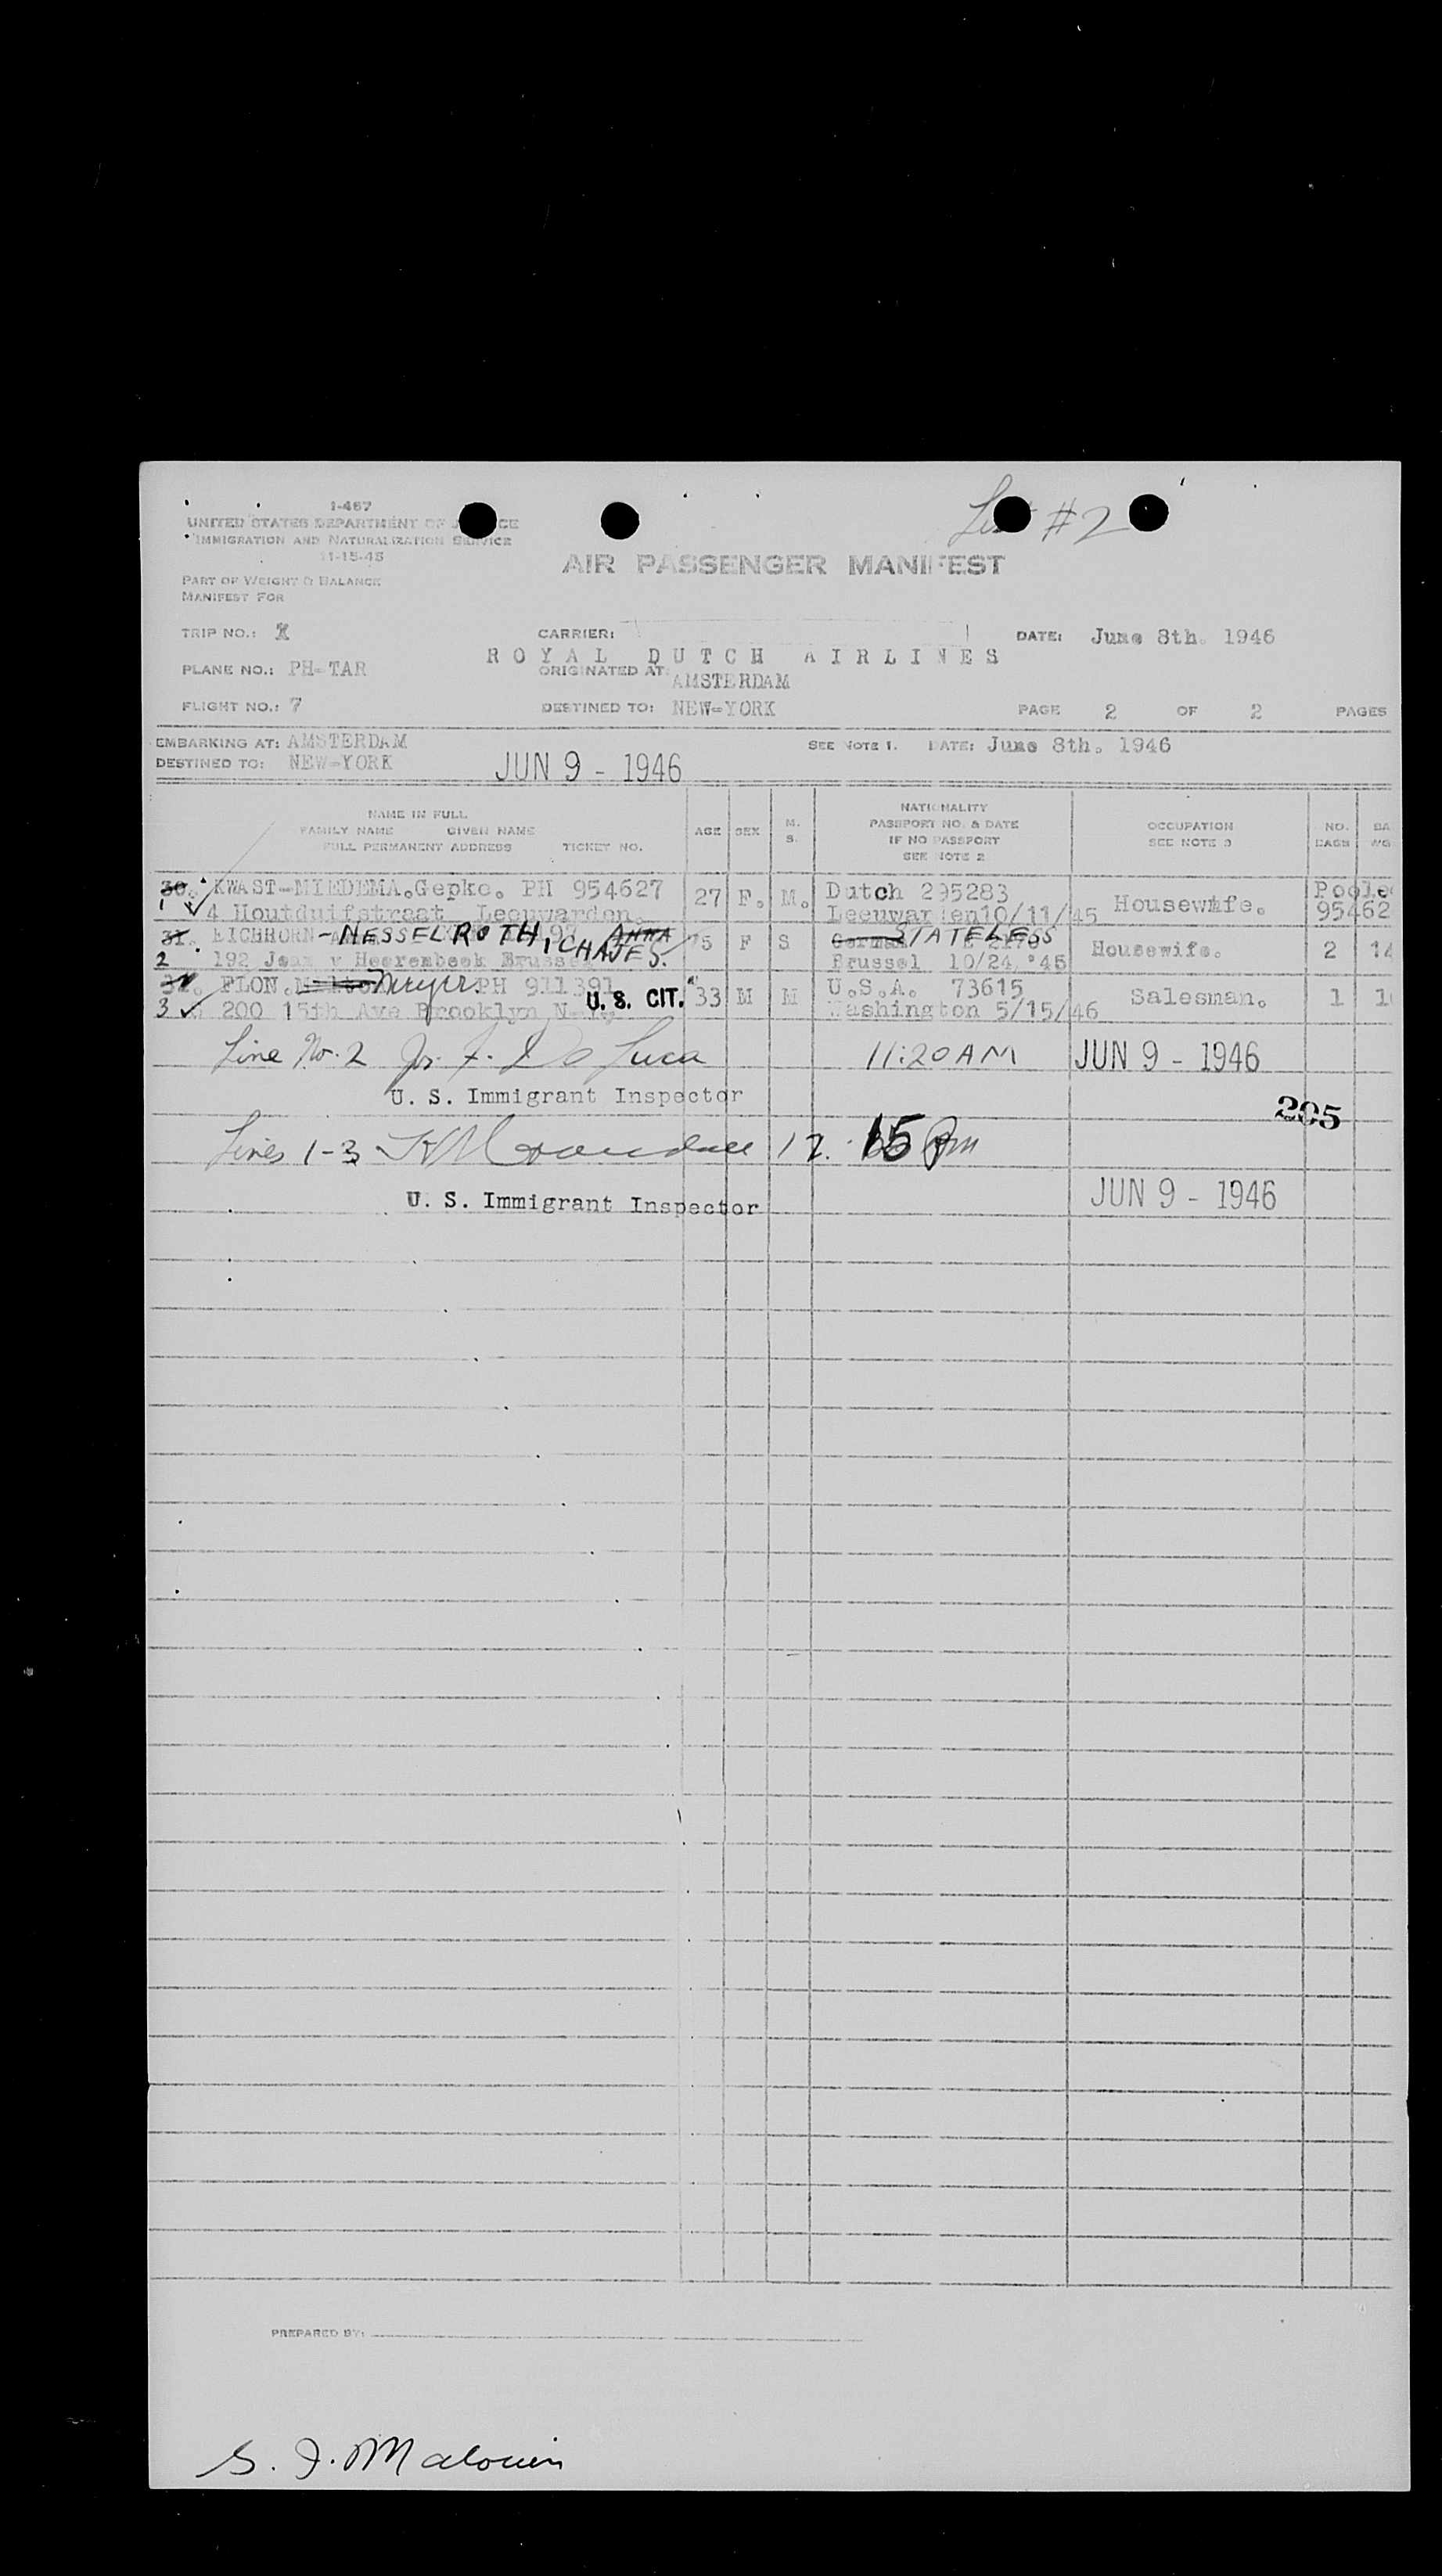 List #2
I-467
UNITED STATES DEPARTMENT OF JUSTICE
IMMIGRATION AND NATURALIZATION SERVICE
11-15-45
AIR PASSENGER MANIFEST
PART OF WEIGHT & BALANCE
MANIFEST FOR
TRIP NO.: CARRIER: DATE: June 8th. 1946
ROYAL DUTCH AIRLINES
PLANE NO.: PH-TAR ORIGINATED AT: AMSTERDAM
FLIGHT NO.: 7 DESTINED TO: NEW-YORK PAGE 2 OF 2 PAGES
EMBARKING AT: AMSTERDAM SEE NOTE 1. DATE: June 8th. 1946
DESTINED TO: NEW-YORK JUN 9 - 1946
NAME IN FULL
FAMILY NAME GIVEN NAME
FULL PERMANENT ADDRESS TICKET NO.
AGE SEX M. S.
NATIONALITY
PASSPORT NO. & DATE
IF NO PASSPORT
SEE NOTE 2
OCCUPATION
SEE NOTE 3
NO. BAGS
BA WG
30. KWAST-MIEDEMA.Gepke. PH 954627 27 F. M. Dutch 295283 Housewife. Poole
1 4 Houtduifstraat Leeuwarden. Leeuwarden10/11/45 95462
31. EICHHORN -NESSELROTH, CHAJES. ANNA 75 F S German STATELESS Housewife. 2 14
2 192 Jean v Heerembeek Brussel Brussel 10/24 '45
32. FLON. Meyer PH 911391 U.S. CIT. 33 M M U.S.A. 73615 Salesman. 1 1
3 200 15th Ave Brooklyn N.Y. Washington 5/15/46
Line No. 2 Jr. F. De Luca 11:20 AM JUN 9 - 1946
U. S. Immigrant Inspector
205
Lines 1-3 12. 15 Pm
U. S. Immigrant Inspector JUN 9 - 1946
PREPARED BY:
S. J. Malouin